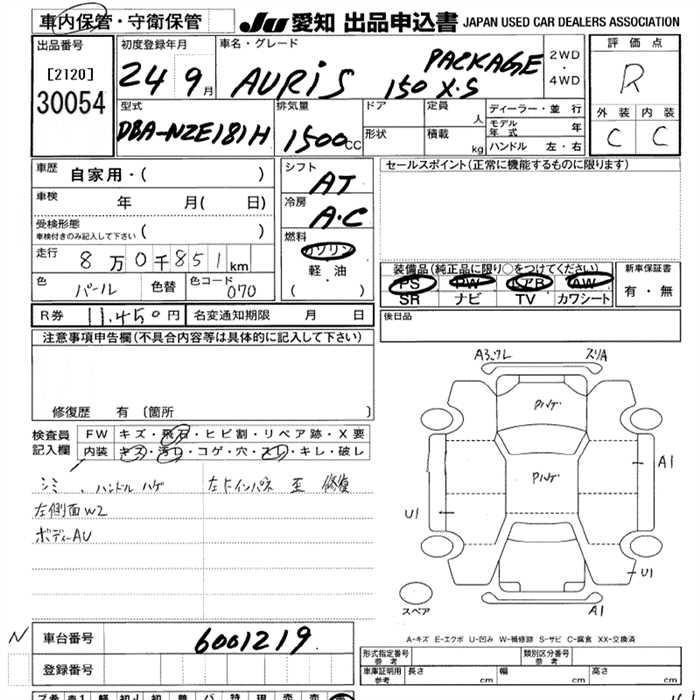 車内保管・守衛保管 JU 愛知 出品申込書 JAPAN USED CAR DEALERS ASSOCIATION
出品番号 [2120] 30054
初度登録年月 24 9月
車名・グレード AURiS 150 X・S PACKAGE
2WD・4WD
評価点 R
外装 C 内装 C
型式 DBA-NZE181H
排気量 1500cc
ドア 形状
定員 人 積載 kg
ディーラー・並行
モデル年式 年
ハンドル 左・右
車歴 自家用・( )
車検 年 月( 日)
受検形態 車検付きのみ記入して下さい ( )
走行 8万0千851km
色 パール 色替 色コード 070
シフト AT
冷房 A・C
燃料 ガソリン 軽・油 ( )
セールスポイント(正常に機能するものに限ります)
装備品(純正品に限り○をつけてください)
PS PW エアB AW
SR ナビ TV カワシート
新車保証書 有・無
後日品
R券 11,450円 名変通知期限 月 日
注意事項申告欄(不具合内容等は具体的に記入して下さい)
修復歴 有 〔箇所 〕
検査員記入欄
FW キズ・飛石・ヒビ割・リペア跡・X要
内装 キズ・汚レ・コゲ・穴・スレ・キレ・破レ
シミ、ハンドルハゲ 左トインパネ 歪 修復
左側面W2
ボディーAU
スリA
Pハゲ
Pハゲ
A1
U1
U1
A1
スペア
A-キズ E-エクボ U-凹み W-補修跡 S-サビ C-腐食 XX-交換済
N 車台番号 6001219
登録番号
形式指定番号 参考 類別区分番号 参考
車庫証明用 参考 長さ cm 幅 cm 高さ cm